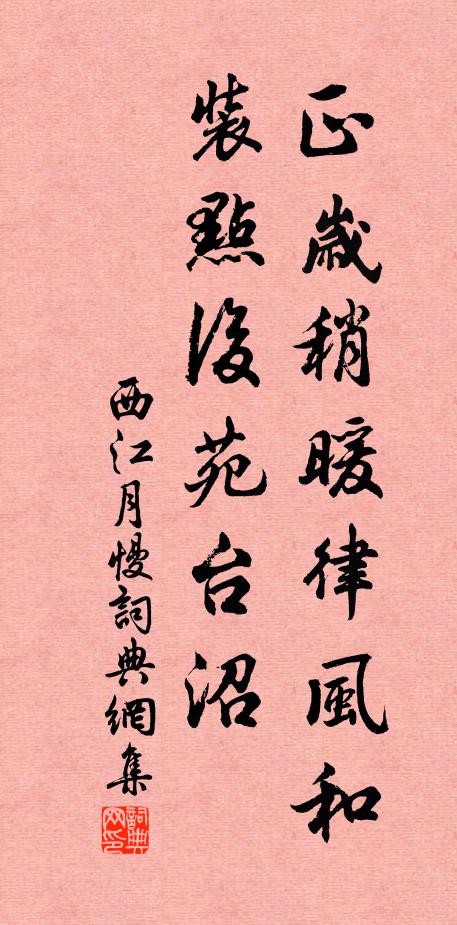 正歲稍暖律風和
裝點後苑台沼
西江月慢詞典網集
詞典网印